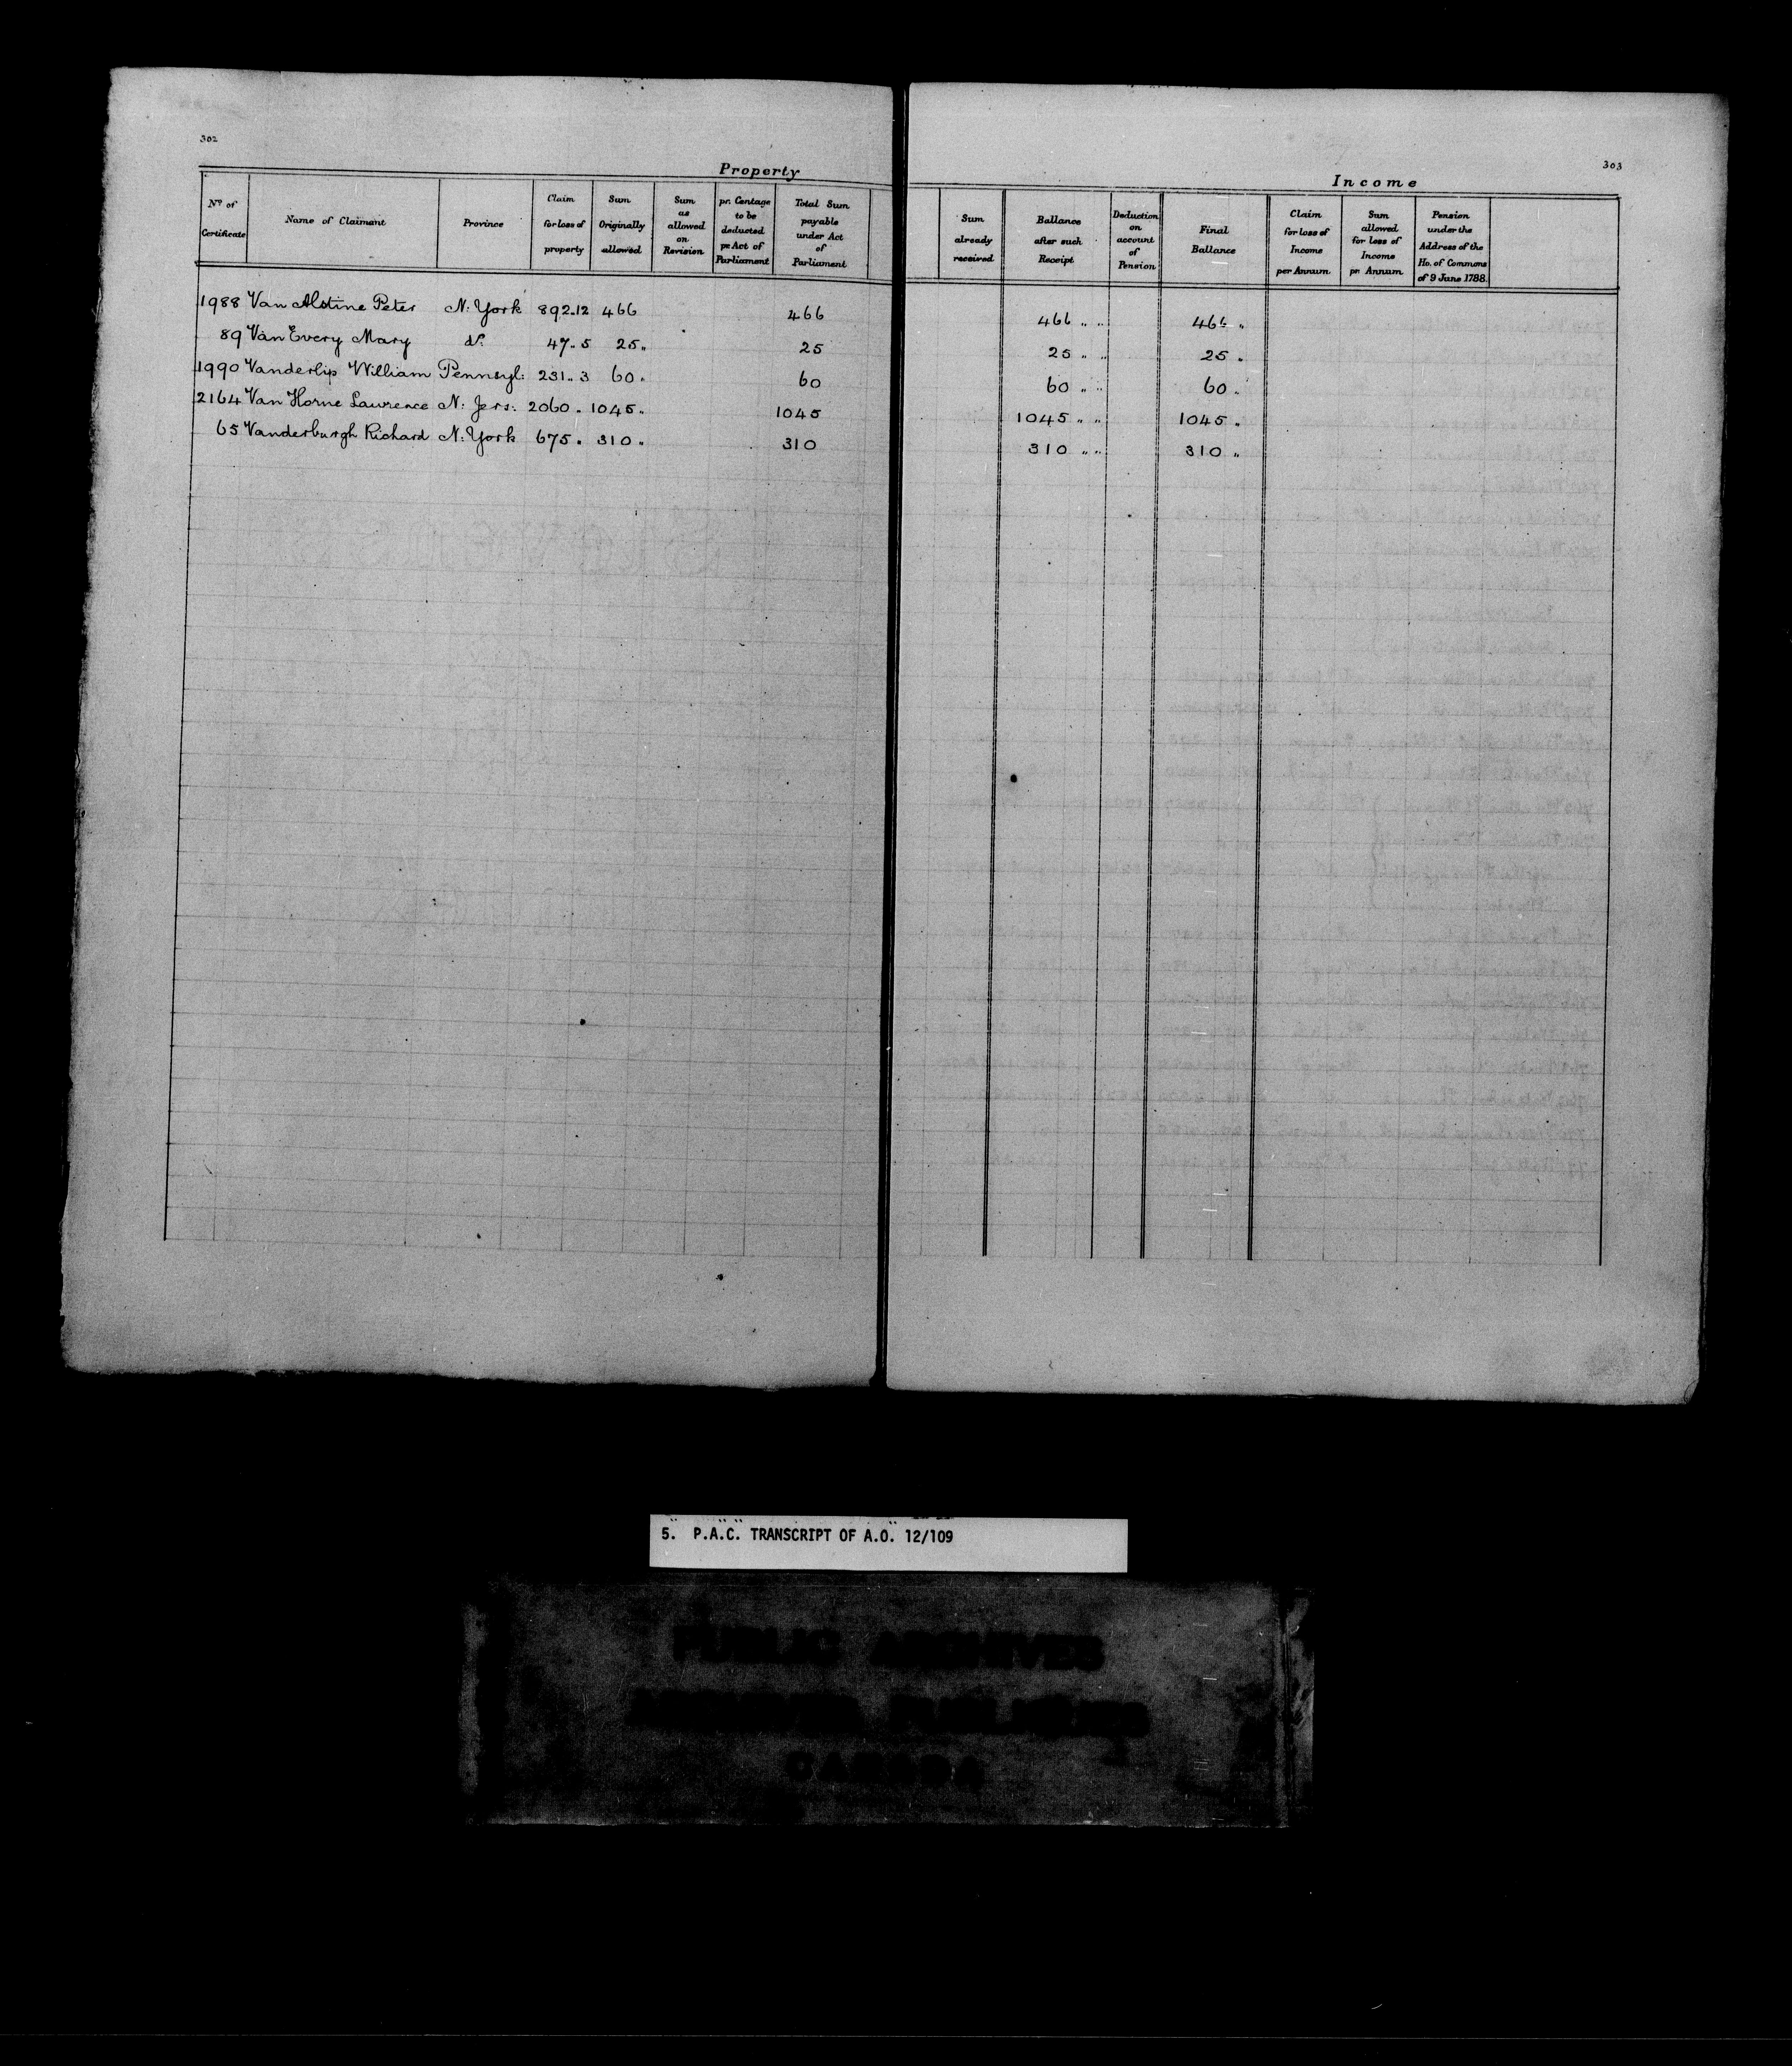 302
303
Property
Income
No. of Certificate
Name of Claimant
Province
Claim for loss of property
Sum Originally allowed
Sum as allowed on Revision
pr. Centage to be deducted pr. Act of Parliament
Total Sum payable under Act of Parliament
Sum already received
Ballance after such Receipt
Deduction on account of Pension
Final Ballance
Claim for loss of Income per Annum
Sum allowed for loss of Income pr. Annum
Pension under the Address of the Ho. of Commons of 9 June 1788
1988 Van Alstine Peter N: York 892..12 466 466 466 „ „ 466 „
89 Van Every Mary do. 47..5 25 „ 25 25 „ „ 25 „
1990 Vanderlip William Pennsyl: 231..3 60 „ 60 60 „ „ 60 „
2164 Van Horne Lawrence N: Jers: 2060 „ 1045 „ 1045 1045 „ „ 1045 „
65 Vanderburgh Richard N: York 675 „ 310 „ 310 310 „ „ 310 „
5. P.A.C. TRANSCRIPT OF A.O. 12/109
PUBLIC ARCHIVES
ARCHIVES PUBLIQUES
CANADA